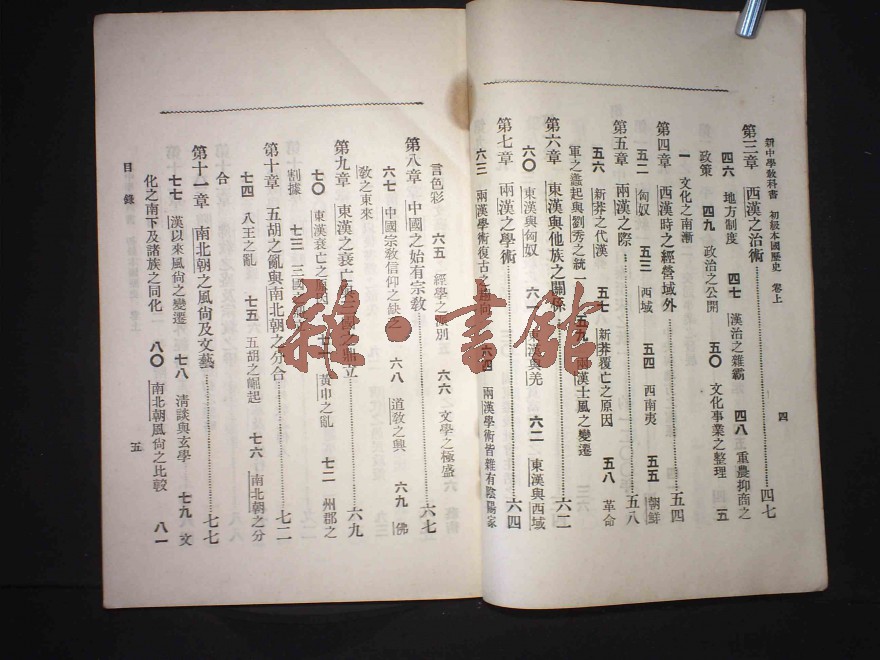 新中學教科書 初級本國歷史 卷上 四
第三章 西漢之治術……………四七
四六 地方制度 四七 漢治之雜霸 四八 重農抑商之
政策 四九 政治之公開 五〇 文化事業之整理 五
一 文化之南漸
第四章 西漢時之經營域外……………五四
五二 匈奴 五三 西域 五四 西南夷 五五 朝鮮
第五章 兩漢之際……………五八
五六 新莽之代漢 五七 新莽覆亡之原因 五八 革命
軍之蠭起與劉秀之統一 五九 兩漢士風之變遷
第六章 東漢與他族之關係……………六二
六〇 東漢與匈奴 六一 東漢與羌 六二 東漢與西域
第七章 兩漢之學術……………六四
六三 兩漢學術復古之傾向 六四 兩漢學術皆雜有陰陽家
言色彩 六五 經學之派別 六六 文學之極盛
第八章 中國之始有宗教……………六七
六七 中國宗教信仰之缺乏 六八 道教之興 六九 佛
教之東來
第九章 東漢之衰亡與三國之鼎立……………六九
七〇 東漢衰亡之原因 七一 黃巾之亂 七二 州郡之
割據 七三 三國
第十章 五胡之亂與南北朝之分合……………七二
七四 八王之亂 七五 五胡之崛起 七六 南北朝之分
合
第十一章 南北朝之風尙及文藝……………七七
七七 漢以來風尙之變遷 七八 清談與玄學 七九 文
化之南下及諸族之同化 八〇 南北朝風尙之比較 八一
目錄 五
雜·書館